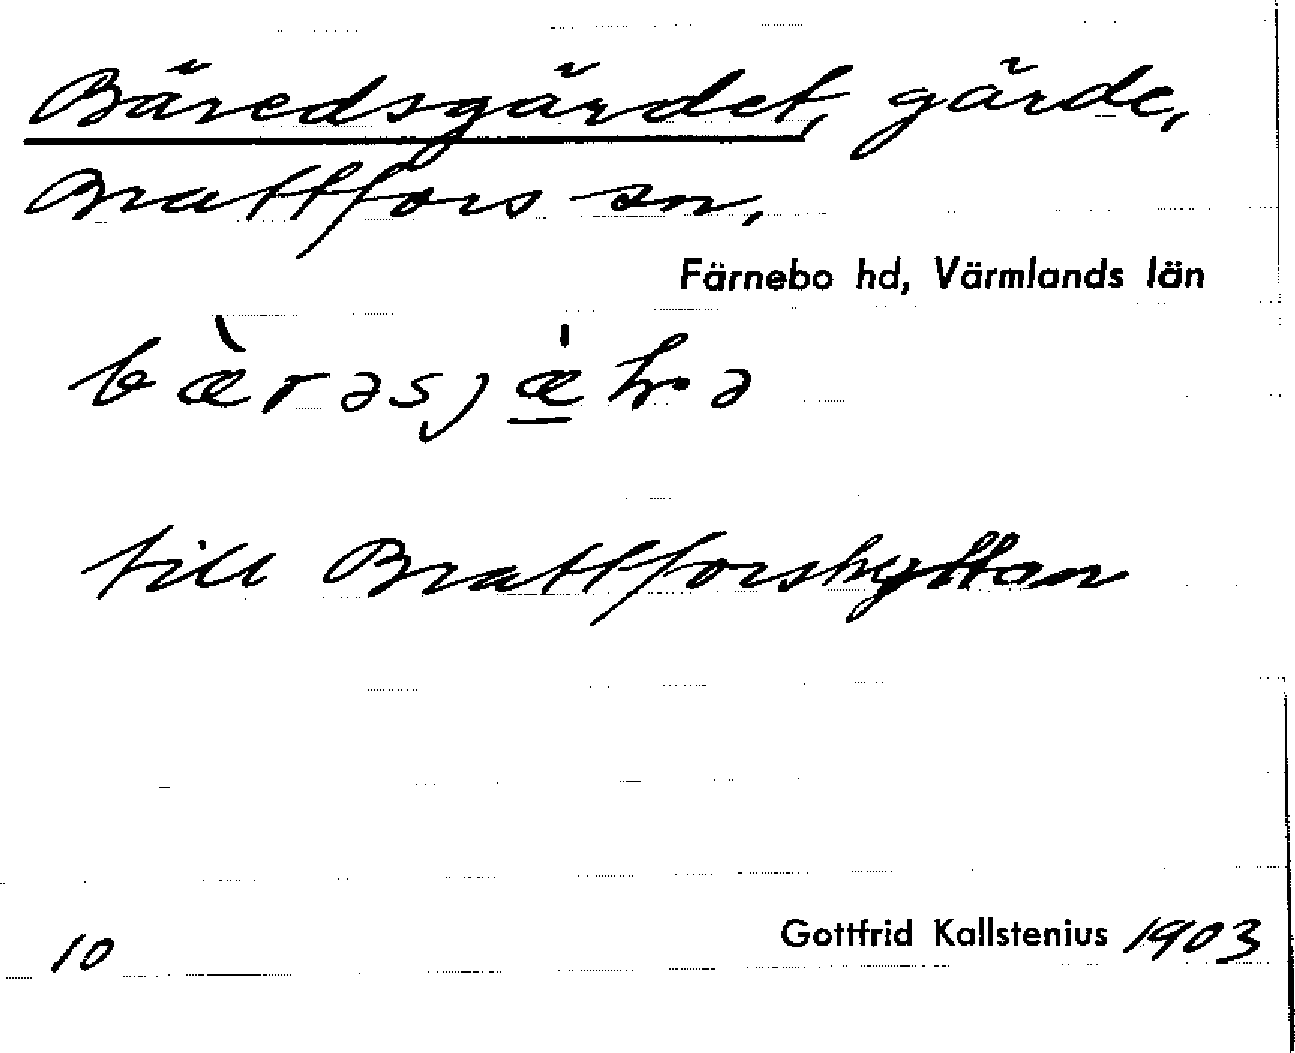 Bäredsgärdet, gärde,
Brattfors sn,
Färnebo hd, Värmlands län
till Brattforshyttan
10
Gottfrid Kallstenius 1903